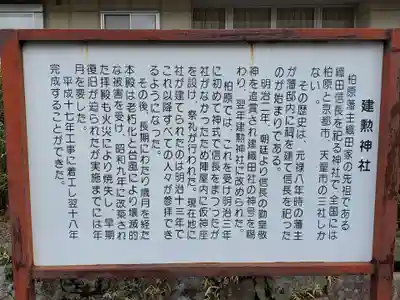 建勲神社
柏原藩主織田家の先祖である
織田信長を祀る神社で、全国には
柏原と京都市、天童市の三社しか
ない。
その歴史は、元禄八年時の藩主
が藩邸内に祠を建て信長を祀った
のが始まりである。
明治二年、朝廷より信長の勤皇敬
神を追賞され建織田社の神号を賜
わり、翌年建勲神社に改められた。
柏原では、これを受け明治三年
に初めて神式で信長をまつったが
社がなかったため陣屋内に仮神座
を設け、祭礼が行われた。現在地に
社が建てられたのは明治十三年で
これ以降すべての人々が参拝でき
るようになった。
その後、長期にわたり歳月を経た
本殿は老朽化と台風により壊滅的
な被害を受け、昭和九年に改築され
た拝殿も火災により焼失し、早期
復旧が迫られたが実施までには年
月を要した。
平成十七年工事に着工し翌十八年
完成することができた。